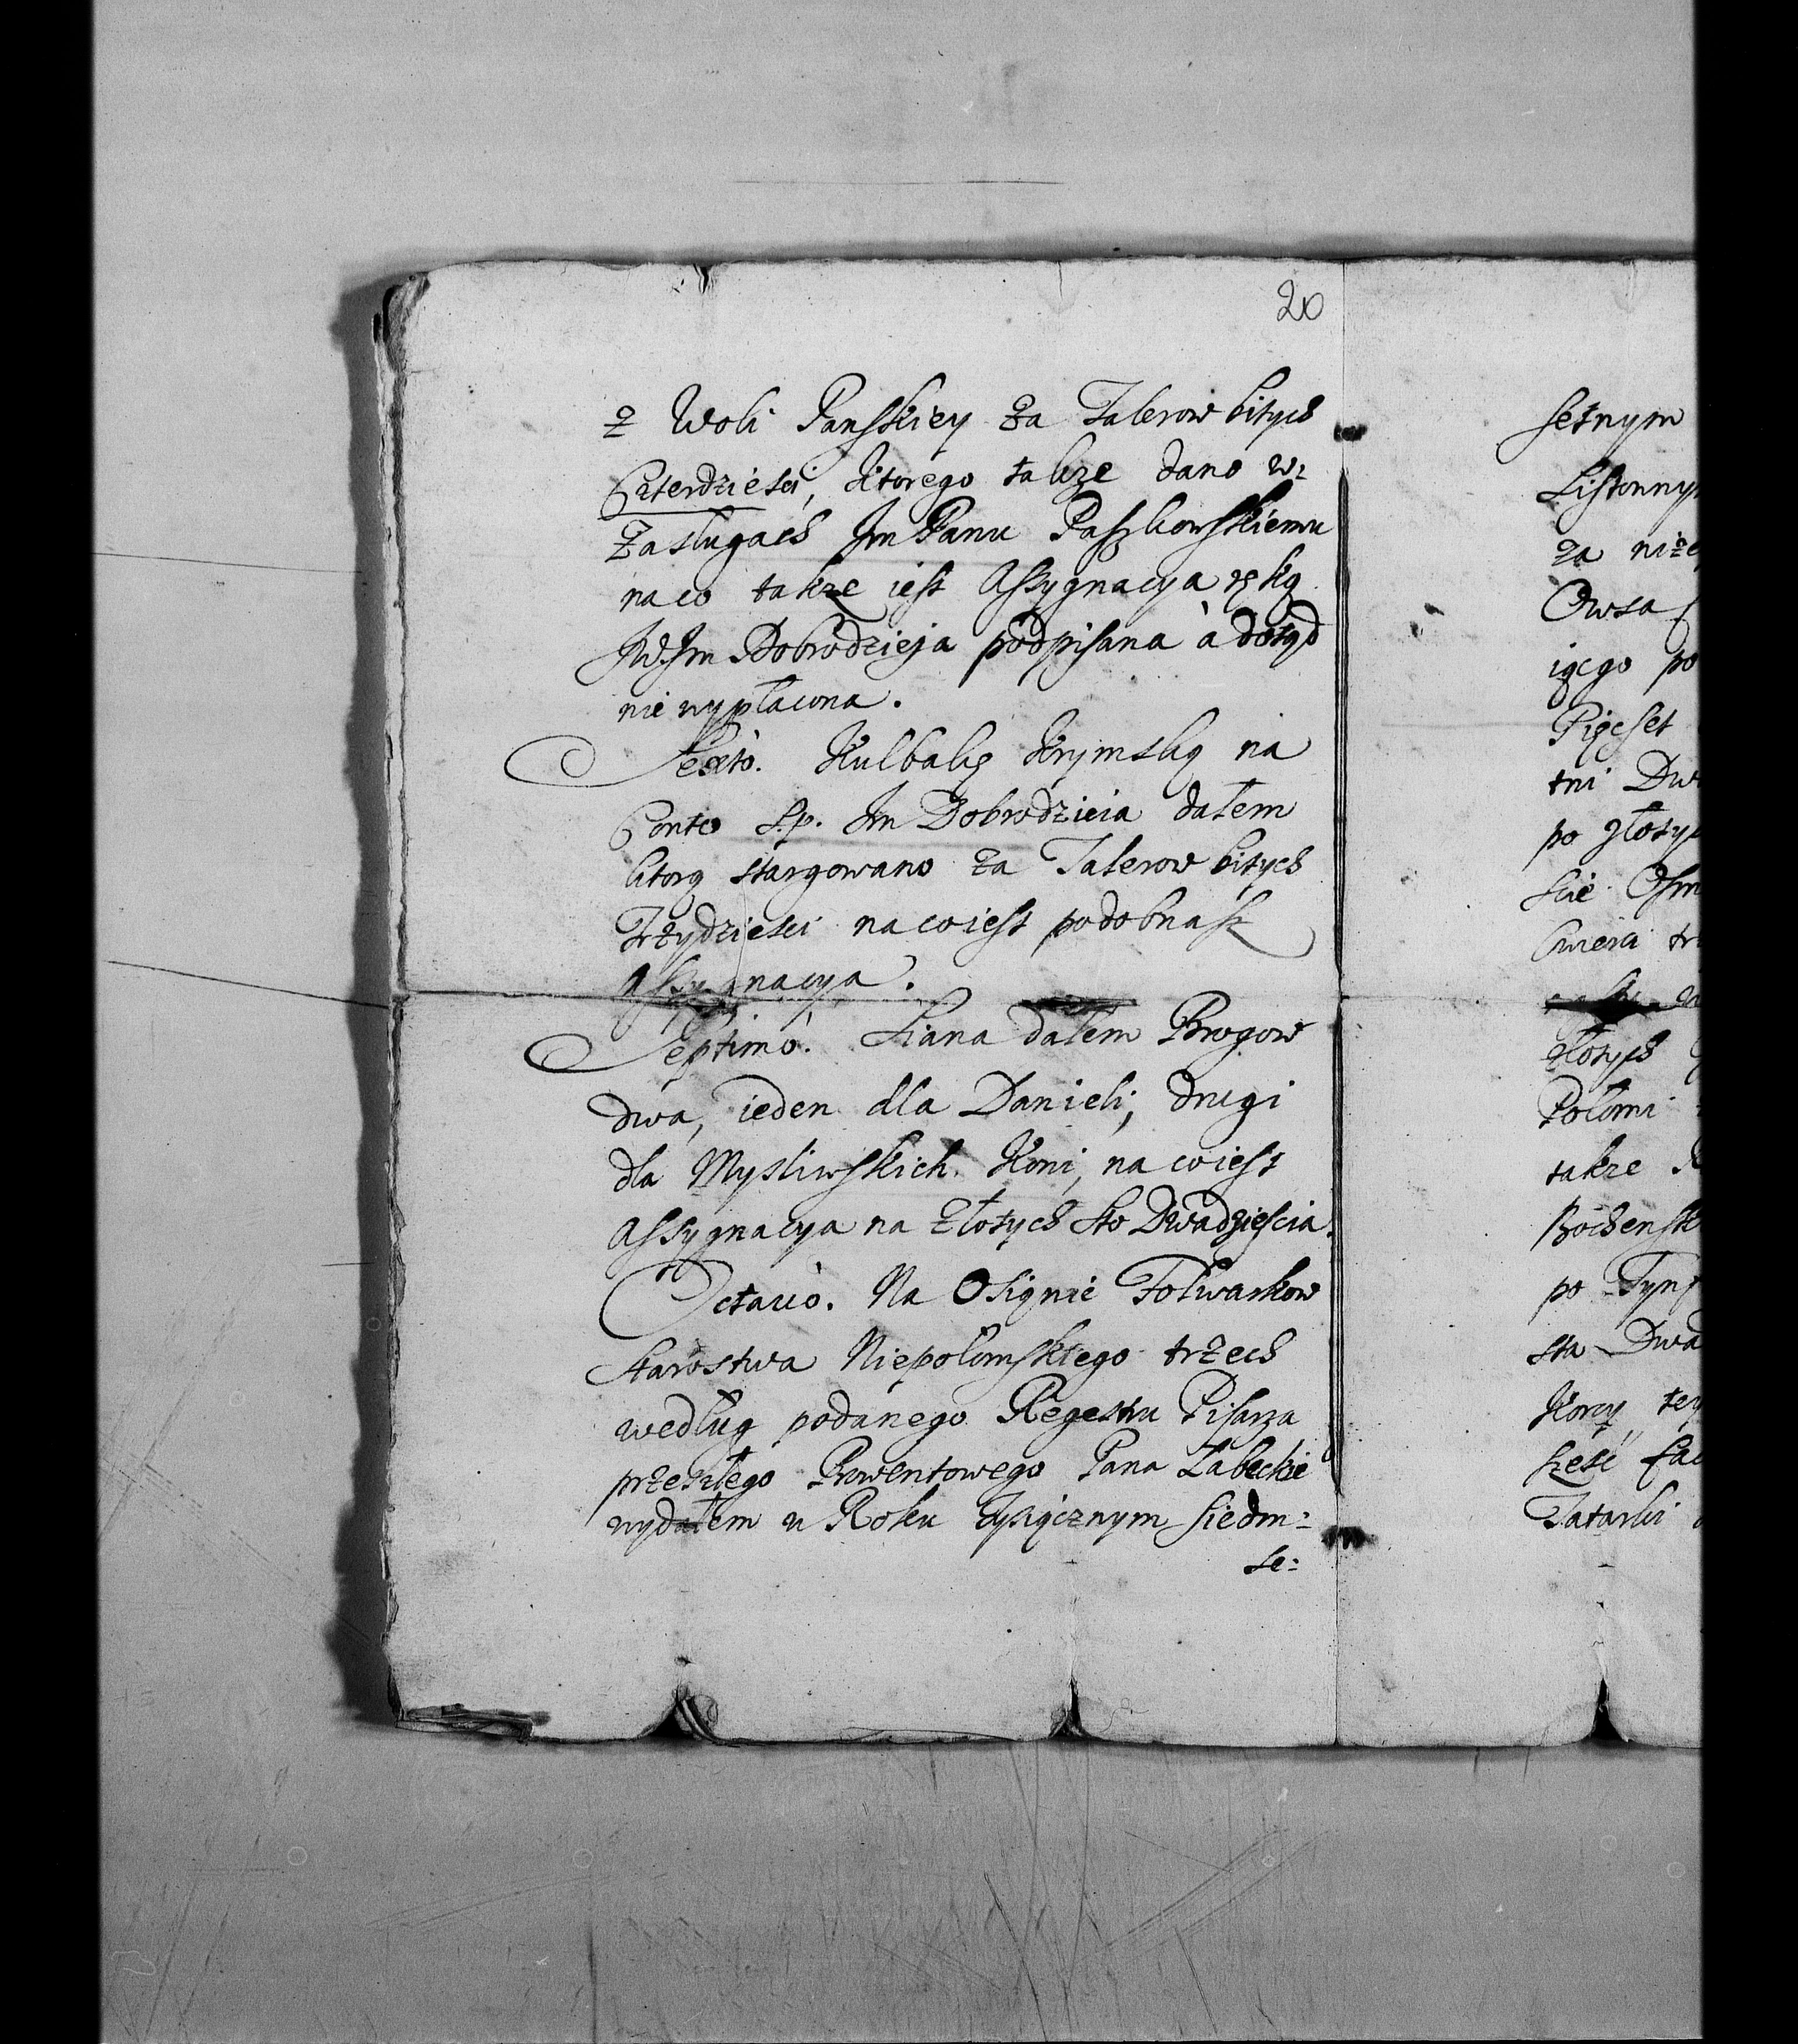 20
z Woli Panskiey za Talerow bitych
Czterdziesci, Ktorego takze dano w:
zasługach Jm Panu Paszkowskiemu
na co takze iest Assygnacya ręką
JWJm Dobrodzieja podpisana à dotąd
nie wypłacona.
Sextò. Kulbakę Krymską na
Conto S.p. Jm Dobrodzieia dałem
ktorą stargowano za Talerow bitych
Trzydziesci na co iest podobnasz
Assygnacya.
Septimò. Siana dałem Brogow
dwa, ieden dla Danieli, drugi
dla Mysliwskich Koni, na co iest
Assygnacya na złotych sto Dwadziescia.
Octavò. Na Osianie Folwarkow
Starostwa Niepołomskiego trzech
według podanego Regestru Pisarza
przeszłego Prowentowego Pana Zabeckie
wydałem w Roku Tysiącznym siedm:
se:
setnym
Listonny
za niże
Owsa
iącego po
Pięcset
tni Dw
po złoty
scie Osm
Cwierci tr
złotych
Połomi
takze
Bochensk
po Tynf
sta Dwa
Korcy tey
szesc
Tatarki